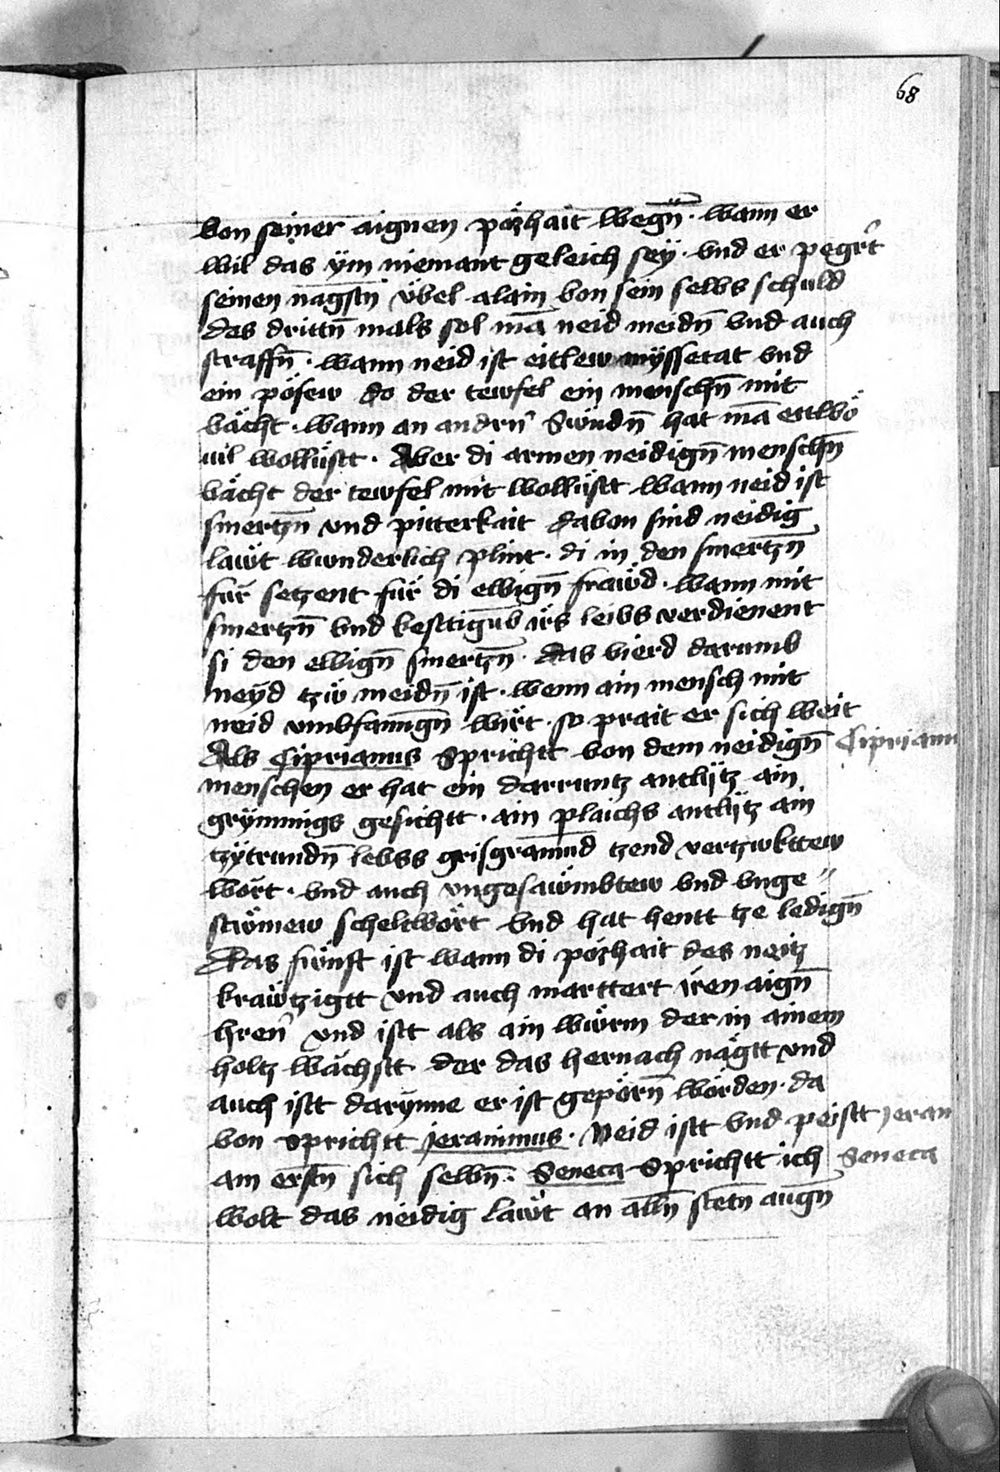 68
von seiner aignen pözhait wegn̄ · wann er
wil das ÿm niemant geleich seÿ · vnd er pegert
seinen nagstn̄ vbel alain von sein selbs schuld
das drittn̄ mals sol mā neid meidn̄ vnd auch
straffn̄ · wann neid ist eitlew mÿssetat vnd
ein pösew do der tewfel ein menschn̄ mit
vächt · wann an andrn̄ Swndn̄ hat mā ettwö
uil wollüstt · Aber di armen neidign̄ menschn̄
vächt der tewfel mit wollüstt wann neid ist
smertzn̄ vnd pitterkait davon sind neidig
lawt wunderlich plint · di in den smertzn̄
für setzent für di ewign̄ frawd · wann mit
smertzn̄ vnd kestigūb irs leibs verdienent
si den ewign̄ smertzn̄ · das vierd darumb
neÿd tzw meidn̄ ist · wenn ain mensch mit
neid vmbfanngn̄ wirt · so prait er sich weit
Als Ciprianus Sprichtt von dem neidign̄ Ciprianu
menschen er hat ein darruntz antlÿtz ain
grÿmmigs gesichtt · ain plaichs antlÿtz ain
tzÿtrundn̄ lebss grisgramund tzend vertzwkttew
wort · vnd auch vngesawmbtew vnd vnge〃
stwmew scheltwort vnd hat hentt tze ledign̄
Das fwnft ist wann di pözhait des neitz
krawtzigtt vnd auch marttert iren aign̄
hren̄ vnd istt als ain wurm der in ainem
holtz wächstt der das hernach nagtt vnd
auch istt darÿnne er ist geporn̄ worden · da
von sprichtt Jeranimus · Neid istt vnd peistt Jeran
am erstn̄ sich selbn̄ · Seneca Sprichtt ich Seneca
wolt das neidig lawt an alln̄ stetn̄ augn̄